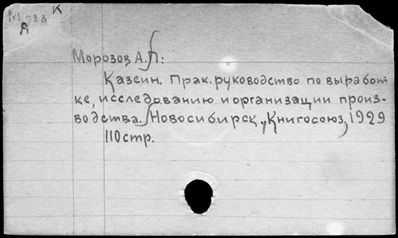 К
М 288
Я
Морозов А.П:
Казеин. Прак. руководство по выработ
ке, исследованию и организации произ-
водства. Новосибирск, „Книгосоюз", 1929
110 стр.